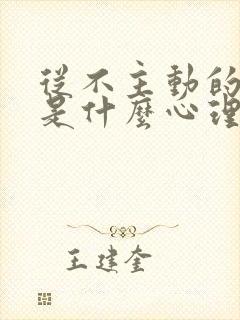 從不主動的
是什麼心理
王建奎